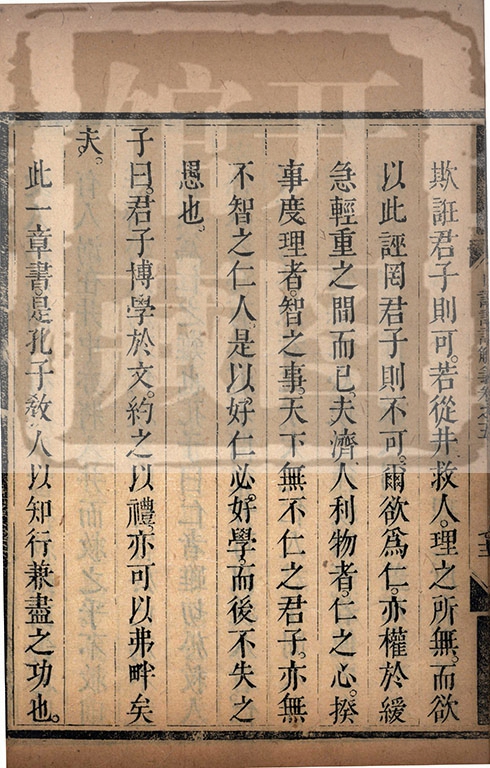 欺誑君子則可。若從井救人。理之所無。而欲
以此誣罔君子則不可。爾欲爲仁。亦權於緩
急輕重之間而已。夫濟人利物者。仁之心。揆
事度理者。智之事。天下無不仁之君子。亦無
不智之仁人。是以。好仁必。好學。而後不失之
愚也。
子曰。君子博學於文。約之以禮。亦可以弗畔矣
夫。
此一章書。是孔子敎人以知行兼盡之功也。